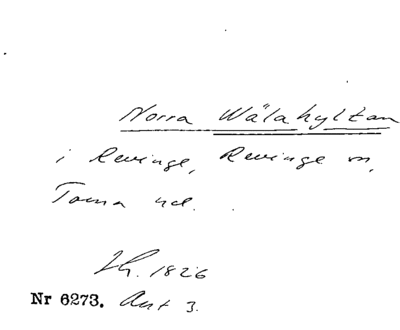 Norra Wälahyltan
i Revinge, Revinge sn,
Torna hd.
Lh. 1826
Nr 6273. Akt 3.